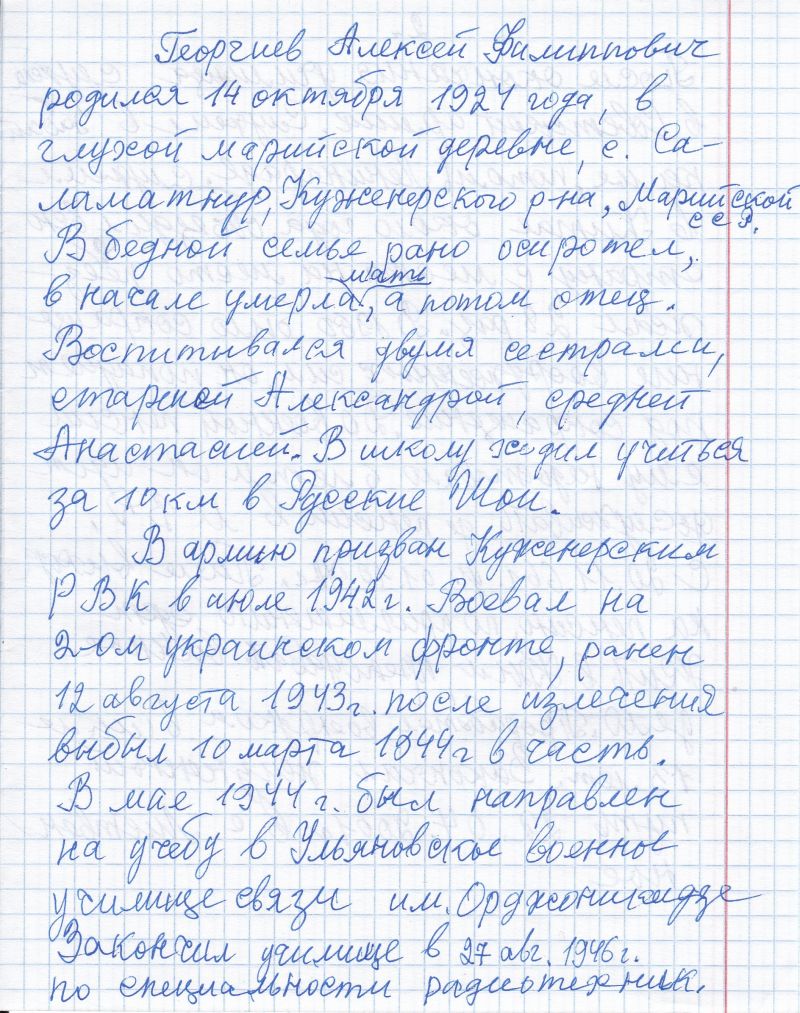 Георгиев Алексей Филиппович
родился 14 октября 1924 года, в
глухой марийской деревне, с. Са-
ламатнур, Куженерского р-на, Марийской
ССР.
В бедной семье, рано осиротел,
мать
в начале умерла, а потом отец.
Воспитывался двумя сестрами,
старшей Александрой, средней
Анастасией. В школу ходил учиться
за 10 км в Русские Шои.
В армию призван Куженерским
РВК в июле 1942 г. Воевал на
2-ом украинском фронте, ранен
12 августа 1943 г. после излечения
выбыл 10 марта 1944 г в часть.
В мае 1944 г. был направлен
на учебу в Ульяновское военное
училище связи им. Орджоникидзе
Закончил училище в 27 авг. 1946 г.
по специальности радиотехник.